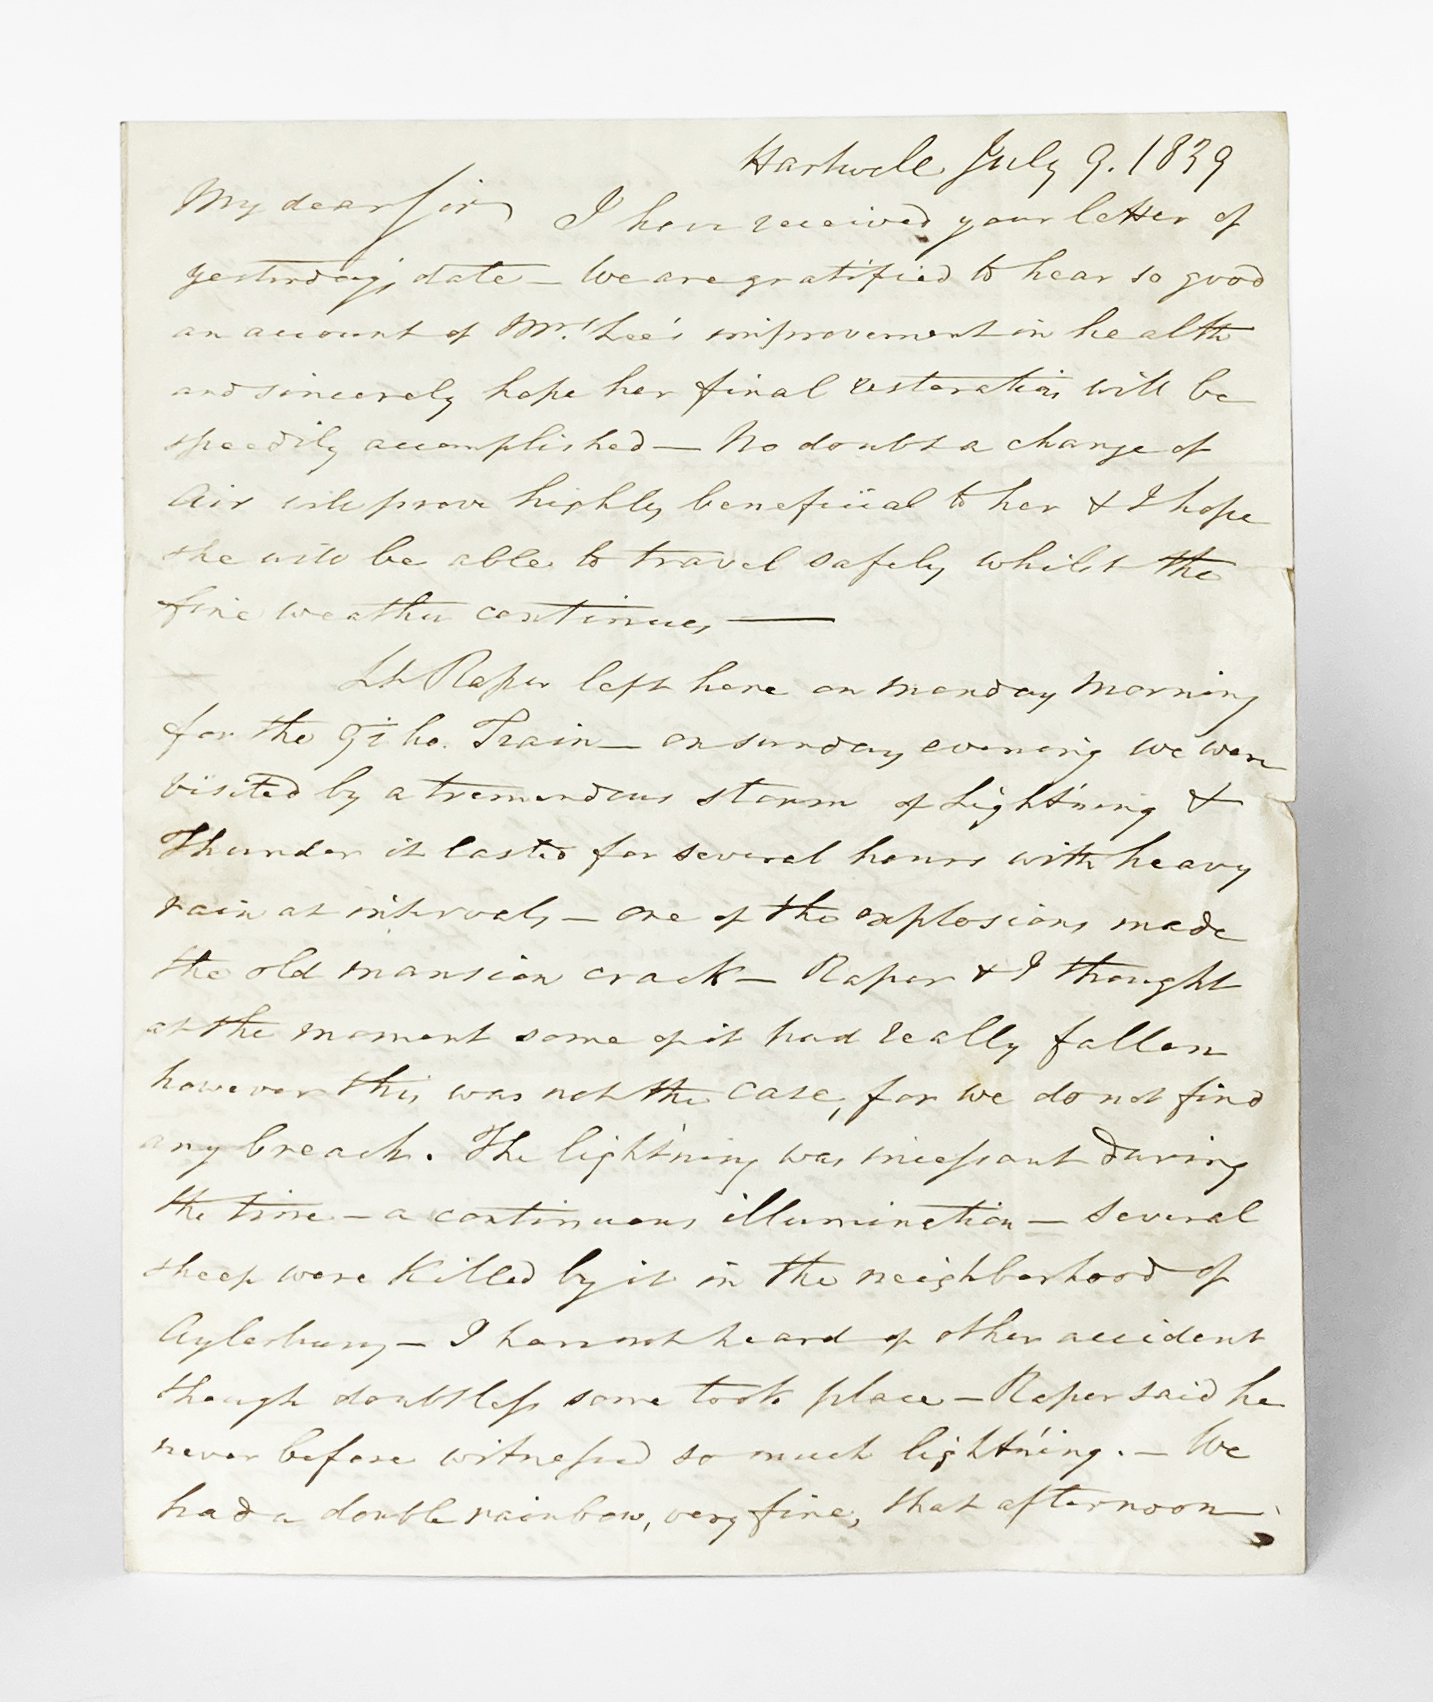 Hartwell July 9. 1839
My dear Sir I have received your letter of
yesterday's date — We are gratified to hear so good
an account of Mrs. Lee's improvement in health
and sincerely hope her final restoration will be
speedily accomplished — No doubt a change of
Air will prove highly beneficial to her & I hope
she will be able to travel safely whilst the
fine weather continues —
Lt Raper left here on Monday Morning
for the 9½ ho. Train — on sunday evening we were
visited by a tremendous storm of Lightning &
Thunder it lasted for several hours with heavy
rain at intervals — one of the explosions made
the old mansion crack — Raper & I thought
at the moment some of it had really fallen
however this was not the case, for we do not find
any breach. The lightning was incessant during
the time — a continuous illumination — several
sheep were killed by it in the neighborhood of
Aylesbury — I have not heard of other accident
though doubtless some took place — Raper said he
never before witnessed so much lightning. — We
had a double rainbow, very fine, that afternoon